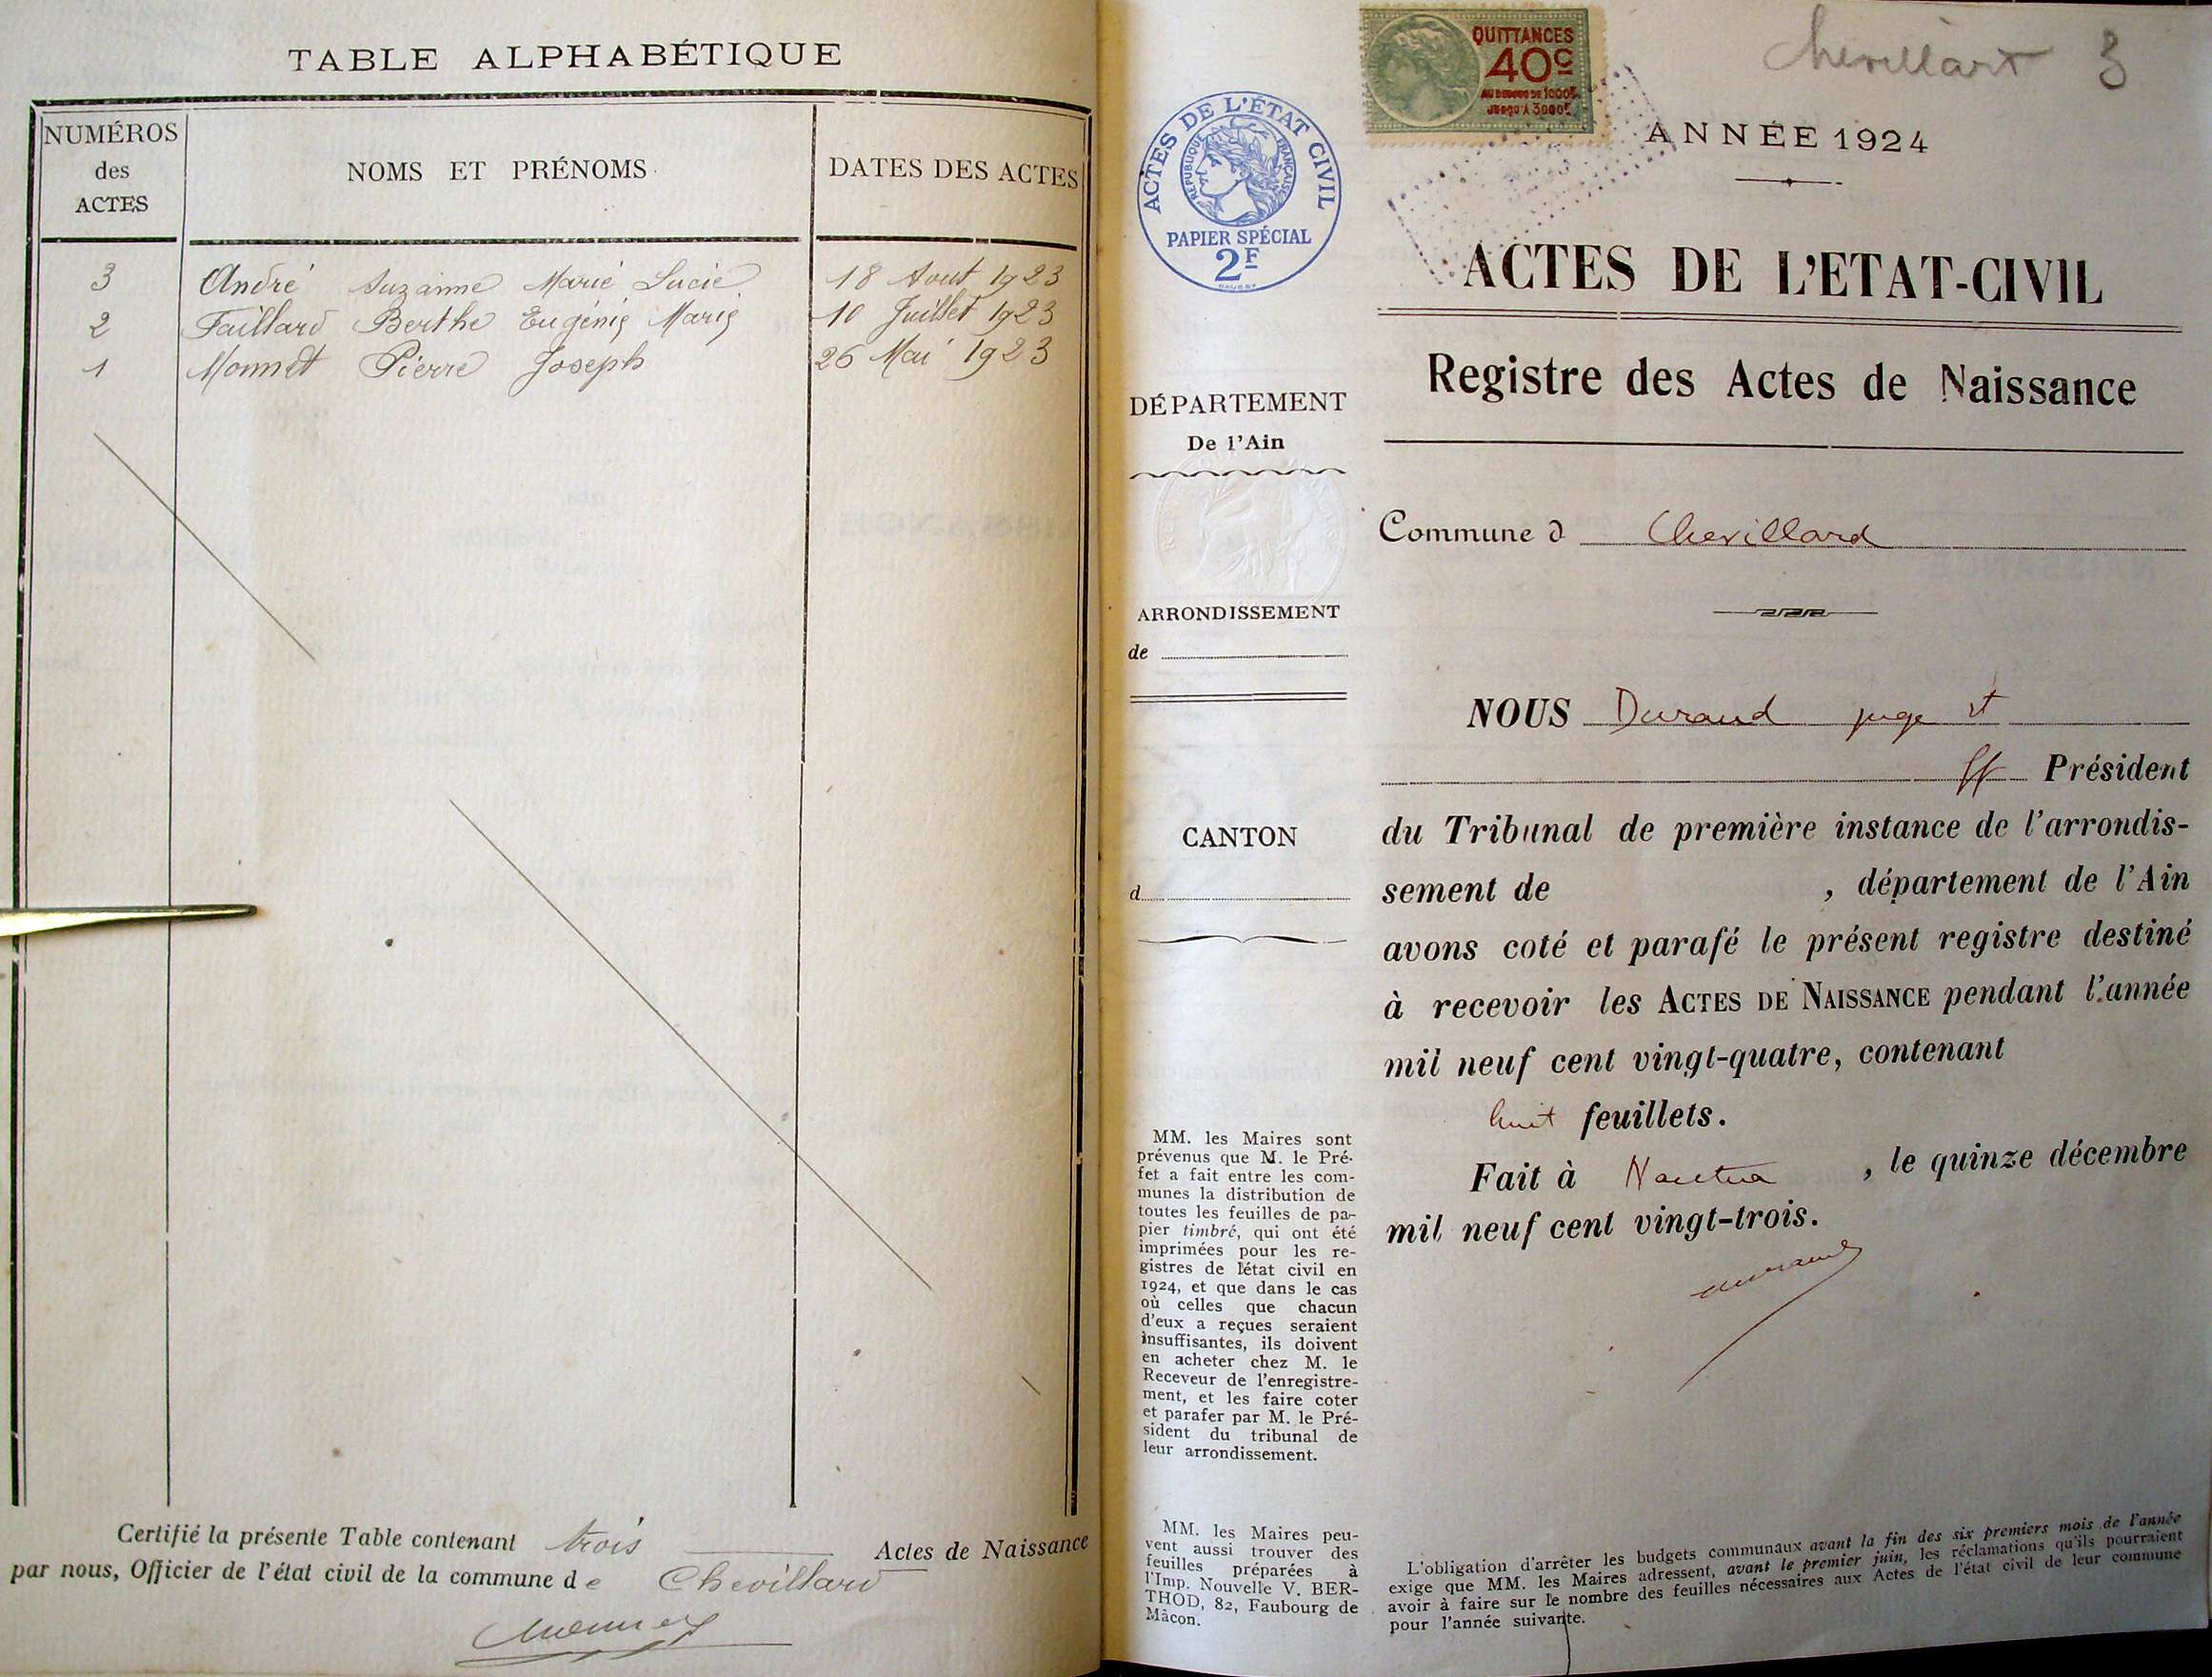 TABLE ALPHABÉTIQUE
NUMÉROS
des
ACTES
NOMS ET PRÉNOMS
DATES DES ACTES
3 André Suzanne Marie Lucie 18 Aout 1923
2 Faillard Berthe Eugénie Marie 10 Juillet 1923
1 Monnet Pierre Joseph 26 Mai 1923
Certifié la présente Table contenant trois Actes de Naissance
par nous, Officier de l'état civil de la commune de Chevillard
Monnet
Chevillard 3
QUITTANCES
40c
AU DESSUS DE 1000F
JUSQU'A 3000F
ACTES DE L'ÉTAT CIVIL
RÉPUBLIQUE FRANÇAISE
PAPIER SPÉCIAL
2F
ANNÉE 1924
ACTES DE L'ETAT-CIVIL
Registre des Actes de Naissance
DÉPARTEMENT
De l'Ain
Commune d Chevillard
ARRONDISSEMENT
de
NOUS Durand juge st
ff Président
CANTON
d
du Tribunal de première instance de l'arrondis-
sement de , département de l'Ain
avons coté et parafé le présent registre destiné
à recevoir les ACTES DE NAISSANCE pendant l'année
mil neuf cent vingt-quatre, contenant
huit feuillets.
Fait à Nantua , le quinze décembre
mil neuf cent vingt-trois.
Durand
MM. les Maires sont
prévenus que M. le Pré-
fet a fait entre les com-
munes la distribution de
toutes les feuilles de pa-
pier timbré, qui ont été
imprimées pour les re-
gistres de l'état civil en
1924, et que dans le cas
où celles que chacun
d'eux a reçues seraient
insuffisantes, ils doivent
en acheter chez M. le
Receveur de l'enregistre-
ment, et les faire coter
et parafer par M. le Pré-
sident du tribunal de
leur arrondissement.
MM. les Maires peu-
vent aussi trouver des
feuilles préparées à
l'Imp. Nouvelle V. BER-
THOD, 82, Faubourg de
Mâcon.
L'obligation d'arrêter les budgets communaux avant la fin des six premiers mois de l'année
exige que MM. les Maires adressent, avant le premier juin, les réclamations qu'ils pourraient
avoir à faire sur le nombre des feuilles nécessaires aux Actes de l'état civil de leur commune
pour l'année suivante.